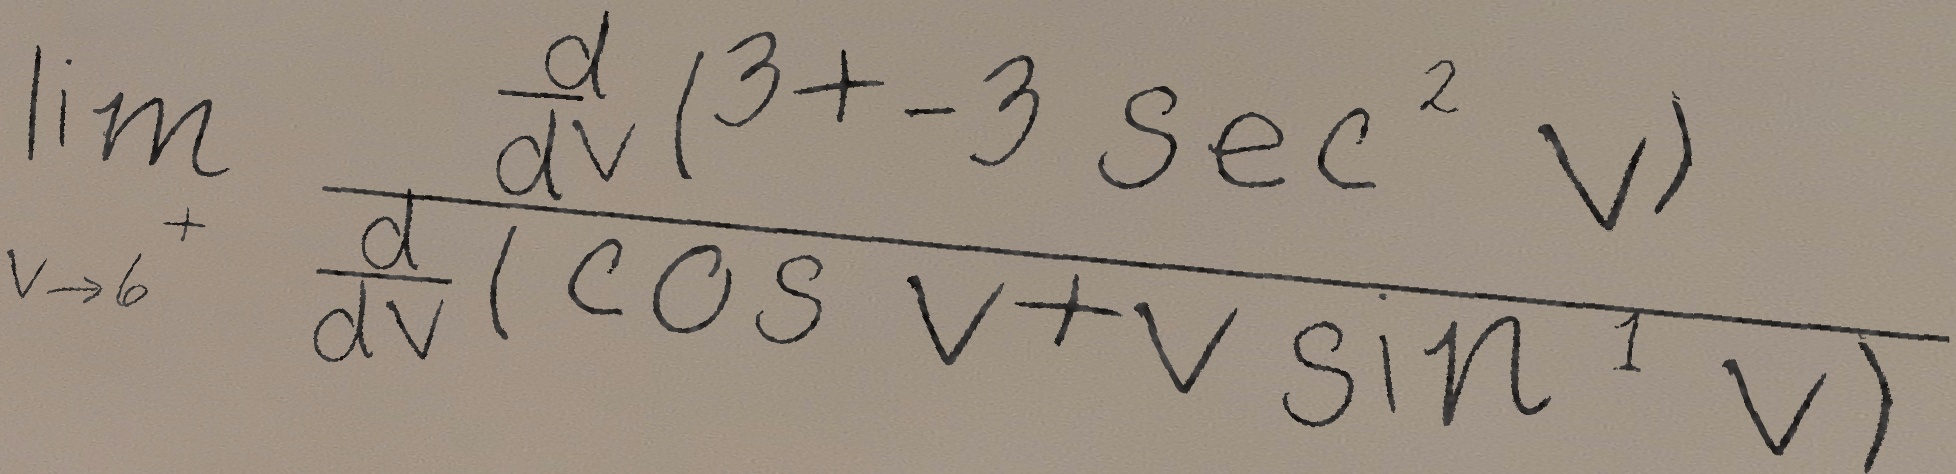 \lim_{v \to 6^{+}} \frac{\frac{d}{dv}(3+-3 \sec^{2} v)}{\frac{d}{dv}(\cos v+v \sin^{1} v)}